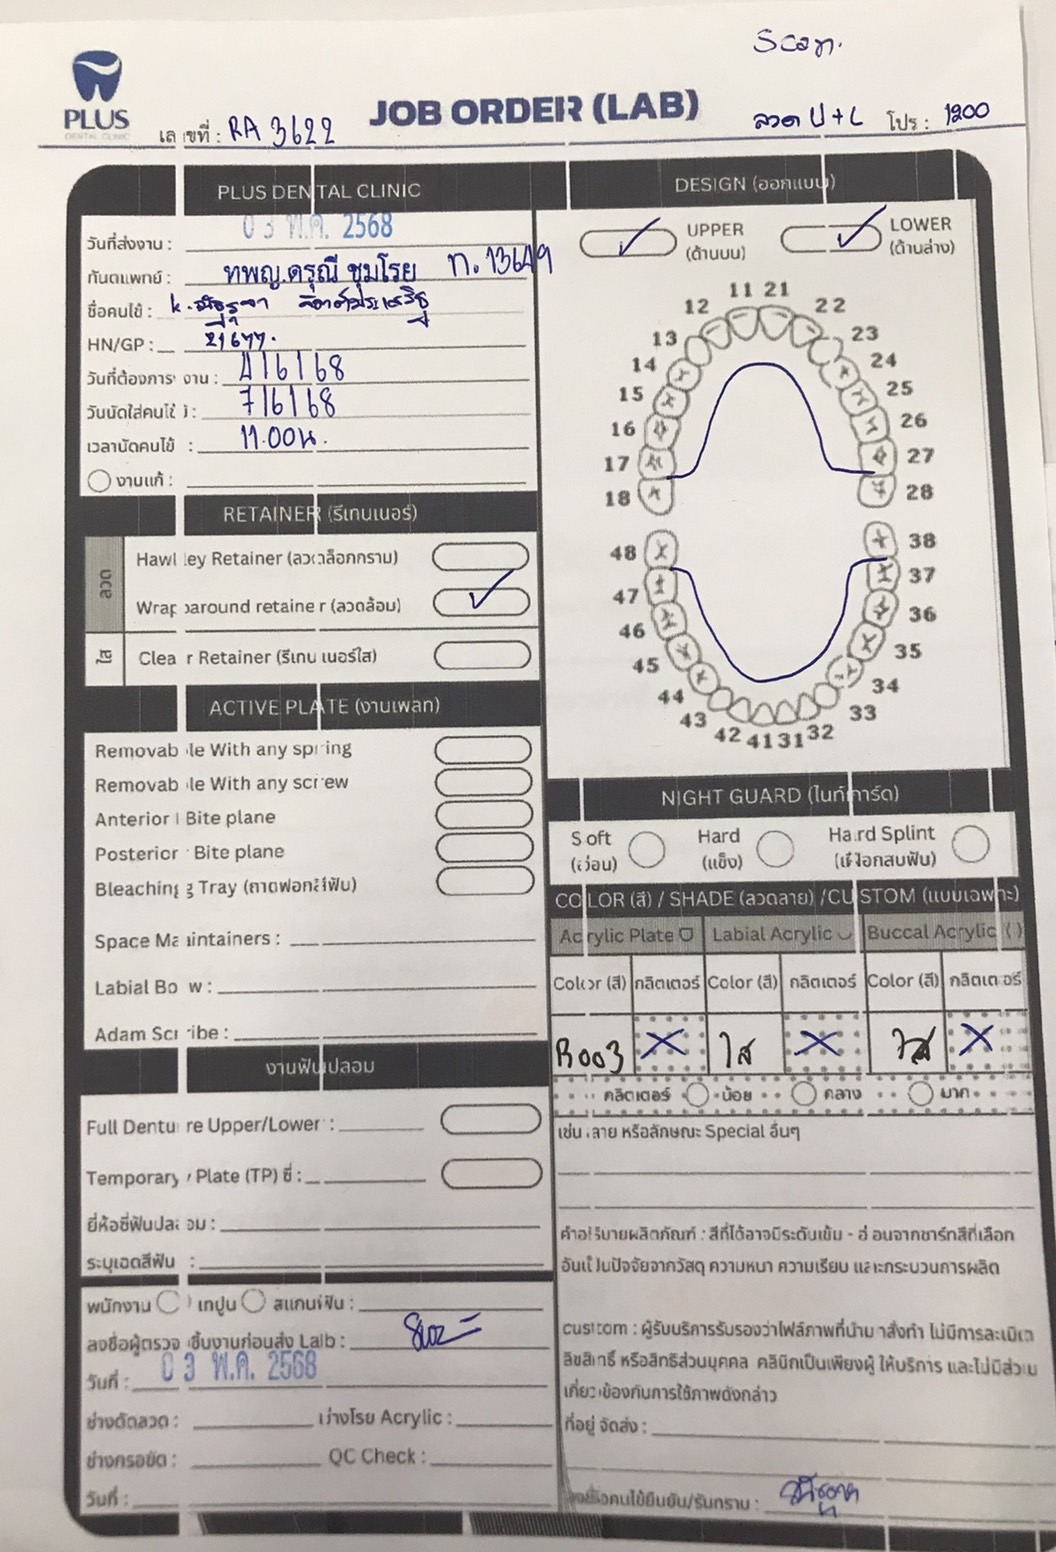 Scan.
PLUS
DENTAL CLINIC
JOB ORDER (LAB)
เลขที่ : RA 3622
ลวด U + L โปร : 1200
PLUS DENTAL CLINIC
วันที่ส่งงาน : 03 พ.ค. 2568
ทันตแพทย์ : ทพญ.ดรุณี ชุมโรย ท. 13649
ชื่อคนไข้ : k.
HN/GP : 21677.
วันที่ต้องการงาน : 4/6/68
วันนัดใส่คนไข้ : 7/6/68
เวลานัดคนไข้ : 11.00น.
งานแก้ :
RETAINER (รีเทนเนอร์)
ลวด
Hawley Retainer (ลวดล็อกกราม)
Wraparound retainer (ลวดล้อม)
ใส
Clear Retainer (รีเทนเนอร์ใส)
ACTIVE PLATE (งานเพลท)
Removable With any spring
Removable With any screw
Anterior Bite plane
Posterior Bite plane
Bleaching Tray (ถาดฟอกสีฟัน)
Space Maintainers :
Labial Bow :
Adam Scribe :
งานฟันปลอม
Full Denture Upper/Lower :
Temporary Plate (TP) ซี่ :
ยี่ห้อซี่ฟันปลอม :
ระบุเฉดสีฟัน :
พนักงาน เทปูน สแกนฟัน :
ลงชื่อผู้ตรวจชิ้นงานก่อนส่ง Lab :
วันที่ : 03 พ.ค. 2568
ช่างดัดลวด : ช่างโรย Acrylic :
ช่างกรอขัด : QC Check :
วันที่ :
DESIGN (ออกแบบ)
UPPER
(ด้านบน)
LOWER
(ด้านล่าง)
11 21
12 22
13 23
14 24
15 25
16 26
17 27
18 28
48 38
47 37
46 36
45 35
44 34
43 33
42 41 31 32
NIGHT GUARD (ไนท์การ์ด)
Soft
(อ่อน)
Hard
(แข็ง)
Hard Splint
(เฝือกสบฟัน)
COLOR (สี) / SHADE (ลวดลาย) /CUSTOM (แบบเฉพาะ)
Acrylic Plate Labial Acrylic Buccal Acrylic ( )
Color (สี) กลิตเตอร์ Color (สี) กลิตเตอร์ Color (สี) กลิตเตอร์
R003 X ใส X ใส X
กลิตเตอร์ น้อย กลาง มาก
เช่น ลาย หรือลักษณะ Special อื่นๆ
คำอธิบายผลิตภัณฑ์ : สีที่ได้อาจมีระดับเข้ม - อ่อนจากชาร์ทสีที่เลือก
อันเป็นปัจจัยจากวัสดุ ความหนา ความเรียบ และกระบวนการผลิต
custom : ผู้รับบริการรับรองว่าไฟล์ภาพที่นำมาสั่งทำ ไม่มีการละเมิด
ลิขสิทธิ์ หรือสิทธิส่วนบุคคล คลินิกเป็นเพียงผู้ให้บริการ และไม่มีส่วน
เกี่ยวข้องกับการใช้ภาพดังกล่าว
ที่อยู่ จัดส่ง :
ลงชื่อคนไข้ยืนยัน/รับทราบ :